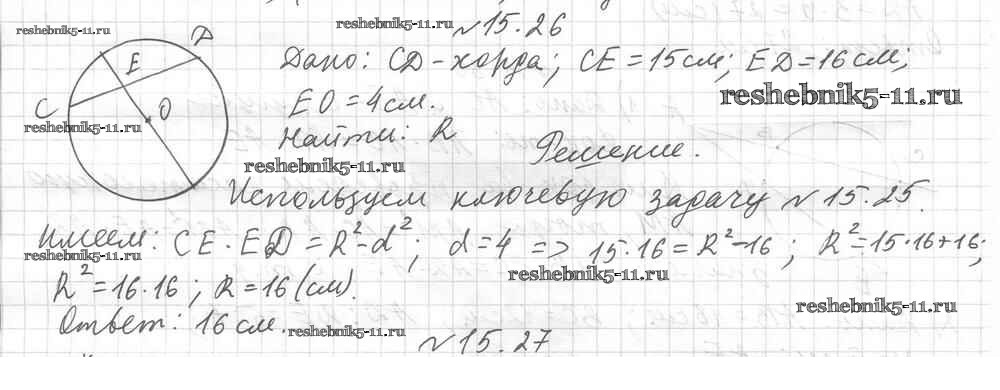 reshebnik5-11.ru
reshebnik5-11.ru
№15.26
D
E
C
O
Дано: CD - хорда; CE = 15 см; ED = 16 см;
EO = 4 см.
reshebnik5-11.ru
reshebnik5-11.ru
Найти: R
Решение.
reshebnik5-11.ru
Используем ключевую задачу №15.25.
Имеем: CE · ED = R² - d²; d = 4 => 15·16 = R² - 16; R² = 15·16 + 16;
reshebnik5-11.ru
reshebnik5-11.ru
R² = 16·16; R = 16 (см).
reshebnik5-11.ru
Ответ: 16 см.
reshebnik5-11.ru
№15.27